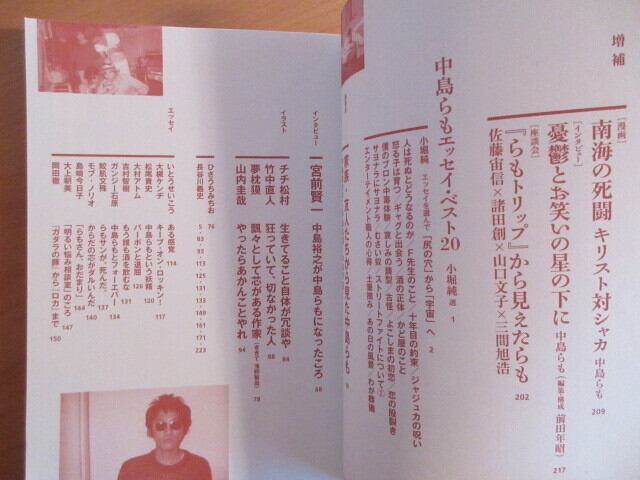 増補
[漫画]
南海の死闘 キリスト対シャカ 中島らも 209
[インタビュー]
憂鬱とお笑いの星の下に 中島らも(編集・構成 前田年昭) 217
[座談会]
『らもトリップ』から見えたらも 202
佐藤宙信×諸田創×山口文子×三間旭浩
中島らもエッセイ・ベスト20 小堀純 選 1
小堀純 エッセイを選んで「尻の穴」から「宇宙」へ 2
人は死ぬとどうなるのか/F先生のこと/十年目の約束/ジャジュカの呪い
怒る子は育つ/ギャグと出会う/酒の正体/かど屋のこと
僕のブロン中毒体験/哀しみの錬型/古怪/よこしまの初恋/恋の股裂き
サヨナラにサヨナラ/むさい奴/ストリートファイトについて②
エンターテイメント職人の心得/土筆摘み/あの日の風景/わが葬儀
家族・友人たちから見た中島らも
インタビュー
宮前賢一 中島裕之が中島らもになったころ 68
チチ松村 生きてること自体が冗談や 84
竹中直人 狂っていて、切なかった人 88
夢枕獏 飄々として芯がある作家 78
山内圭哉 やったらあかんことやれ 94
イラスト
ひさうちみちお 76
長谷川義史 5・83・93・113・125・131・133・139・149・161・171・223
エッセイ
いとうせいこう ある感覚 114
大槻ケンヂ キープ・オン・ロッキン! 117
松尾貴史 中島らもという妖精 120
大村アトム バーボンと退屈 126
吉村智樹 もう誰も酒を飲むな 131
ガンジー石原 中島らもとフォーエバー 134
鮫肌文殊 らもサンが、死んだ。 137
モブ・ノリオ からだの芯がダルいんだ 140
島﨑今日子 「らもさん、おだまり」 144
大上朝美 「明るい悩み相談室」のころ 147
岡田徹 『ガダラの豚』から『ロカ』まで 150